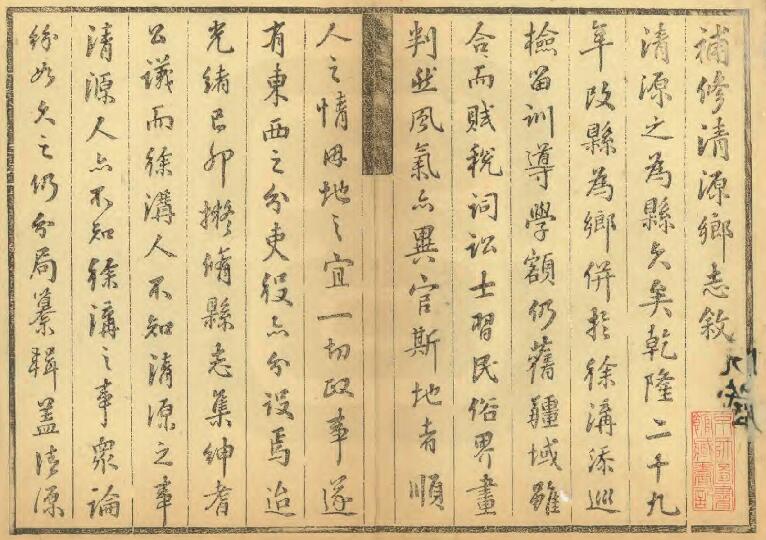 補修清源鄉志敘
清源之為縣久矣乾隆二十九
年改縣為鄉併於徐溝添巡
檢留訓導學額仍舊疆域雖
合而賦稅詞訟士習民俗界畫
判然風氣亦異官斯地者順
人之情因地之宜一切政事遂
有東西之分吏役亦分設焉迨
光緒己卯擬脩縣志集紳耆
公議而徐溝人不知清源之事
清源人亦不知徐溝之事眾論
紛如久之仍分局纂輯蓋清源